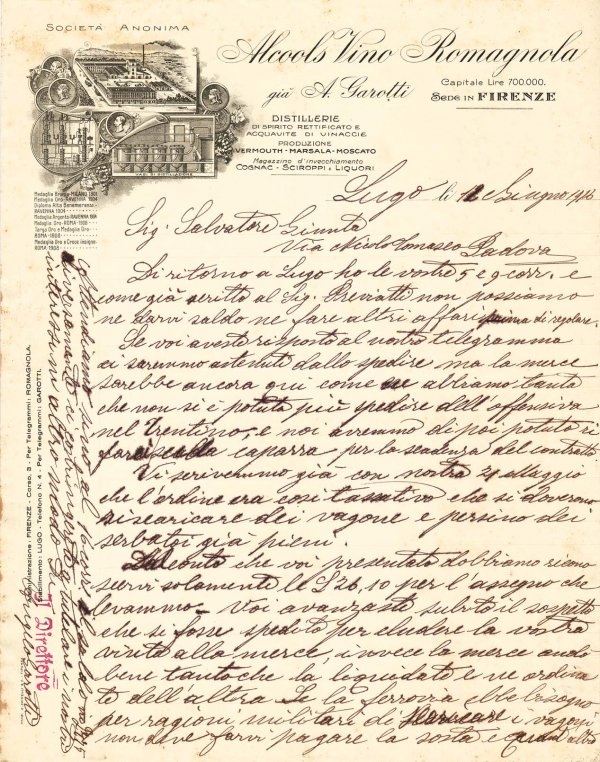 SOCIETÀ ANONIMA
Alcools Vino Romagnola
già A. Garotti
Capitale Lire 700.000.
SEDE IN FIRENZE
DISTILLERIE
DI SPIRITO RETTIFICATO E
ACQUAVITE DI VINACCIE
PRODUZIONE
VERMOUTH - MARSALA - MOSCATO
Magazzino d'invecchiamento
COGNAC - SCIROPPI & LIQUORI
Medaglia Bronzo - MILANO 1901
Medaglia Oro - RAVENNA 1904
Diploma Alta Benemerenza -
RAVENNA 1904
Medaglia Argento - RAVENNA 1904
Medaglia Oro - ROMA - 1908
Targa Oro e Medaglia Oro
ROMA - 1908
Medaglia Oro e Croce insigne
ROMA 1908
Lugo li 12 Giugno 1916
Sig. Salvatore Giunta
Via Nicolo Tomaseo Padova
Di ritorno a Lugo ho le vostre 5 e 9 corr. e
come già scritto al Sig. Previatti non possiamo
ne darvi saldo ne fare altri affari prima di regolare.
Se voi aveste risposto al nostro telegramma
ci saremmo astenuti dallo spedire ma la merce
sarebbe ancora qui come ne abbiamo tanta
che non si è potuta più spedire dell'offensiva
nel Trentino, e noi avremmo di poi potuto ri
caparra per la scadenza del contratto
Vi scrivemmo già con nostra 21 Maggio
che l'ordine era così tassativo che si doverono
riscaricare dei vagone e persino dei
serbatoi già pieni.
che voi presentate dobbiamo
solamente le £ 26,10 per l'assegno che
levammo - Voi avanzaste subito il sospetto
che si fosse spedito per eludere la vostra
visita alla merce, invece la merce andò
bene tanto che la liquidate e ne ordina
te dell'altra. Se la ferrovia ebbe bisogno
per ragioni militari di i vagoni
non deve farvi pagare la sosta e
Amministrazione: FIRENZE - Corso, 3 - Per Telegrammi: ROMAGNOLA.
Stabilimento: LUGO - Telefono N. 4 - Per Telegrammi: GAROTTI.
diversamente ci costringete a tutelare i nostri
interessi in altro modo
Il Direttore